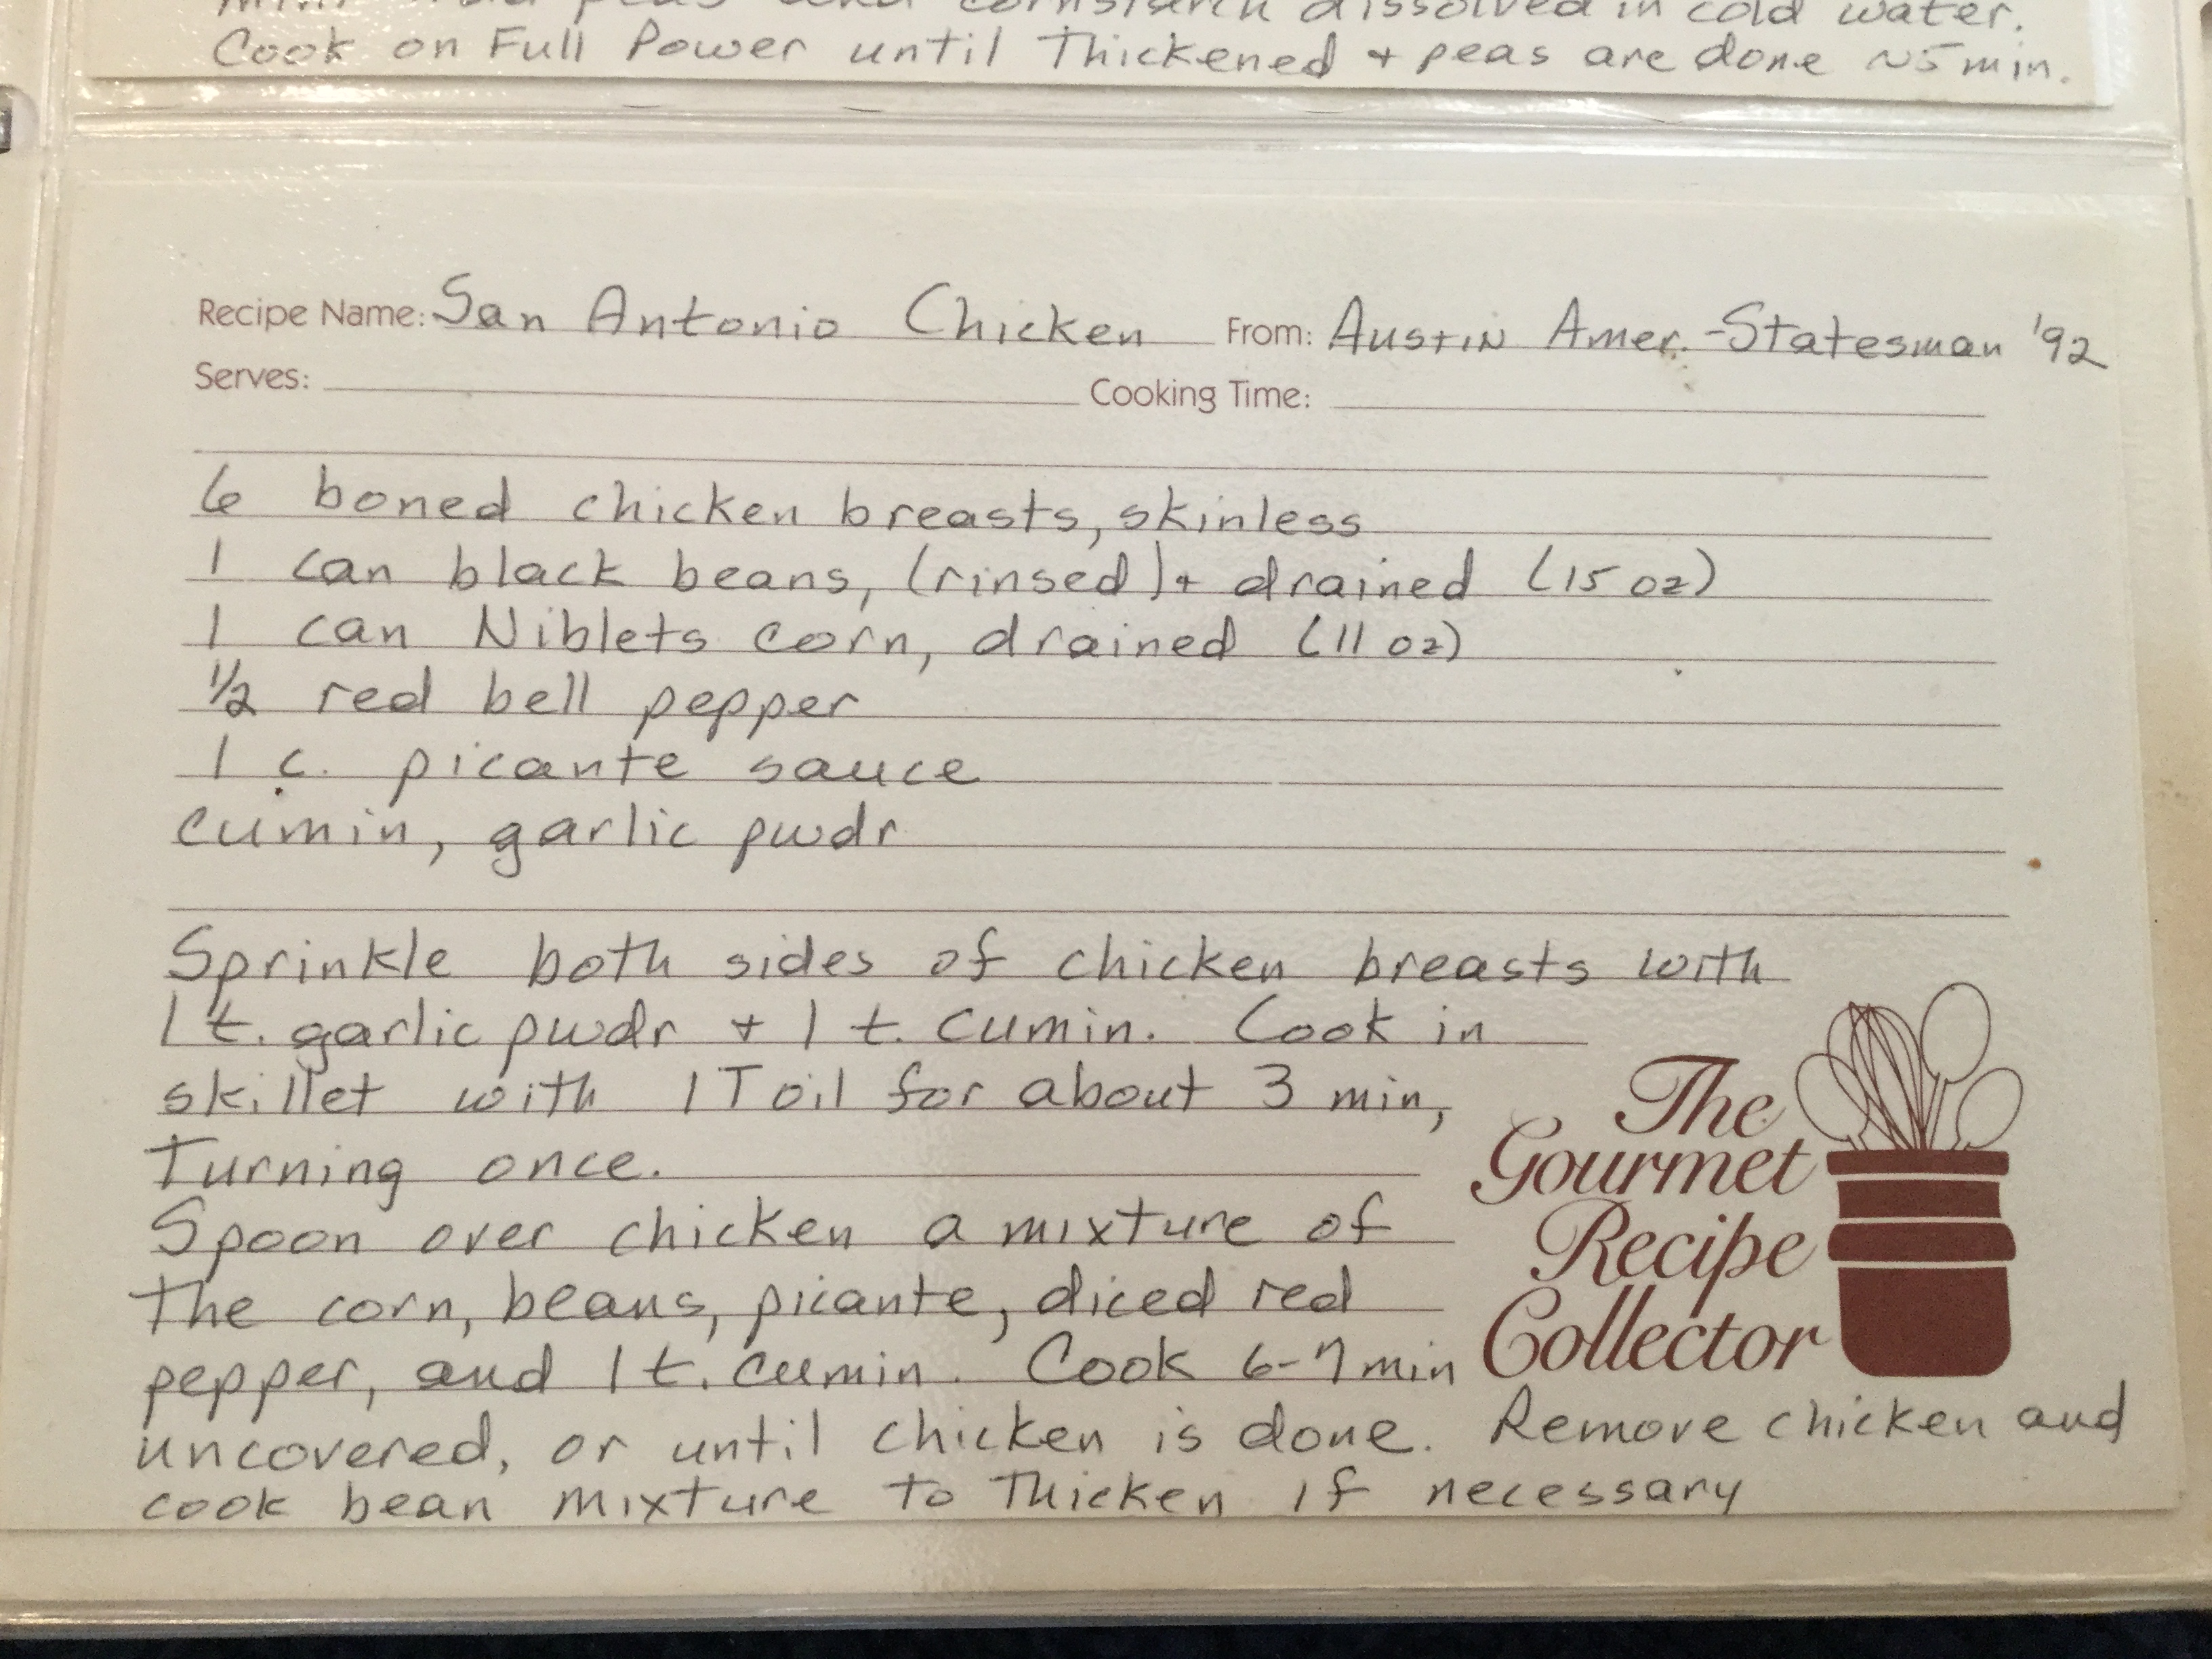 cornstarch dissolved in cold water.
Cook on Full Power until Thickened + peas are done ~5 min.
Recipe Name: San Antonio Chicken From: Austin Amer.-Statesman '92
Serves: Cooking Time:
6 boned chicken breasts, skinless
1 can black beans, (rinsed) + drained (15 oz)
1 can Niblets corn, drained (11 oz)
1/2 red bell pepper
1 c. picante sauce
cumin, garlic pwdr
Sprinkle both sides of chicken breasts with
1 t. garlic pwdr + 1 t. cumin. Cook in
skillet with 1 T oil for about 3 min,
Turning once.
Spoon over chicken a mixture of
The corn, beans, picante, diced red
pepper, and 1 t. cumin. Cook 6-7 min
uncovered, or until chicken is done. Remove chicken and
cook bean mixture to Thicken if necessary
The
Gourmet
Recipe
Collector